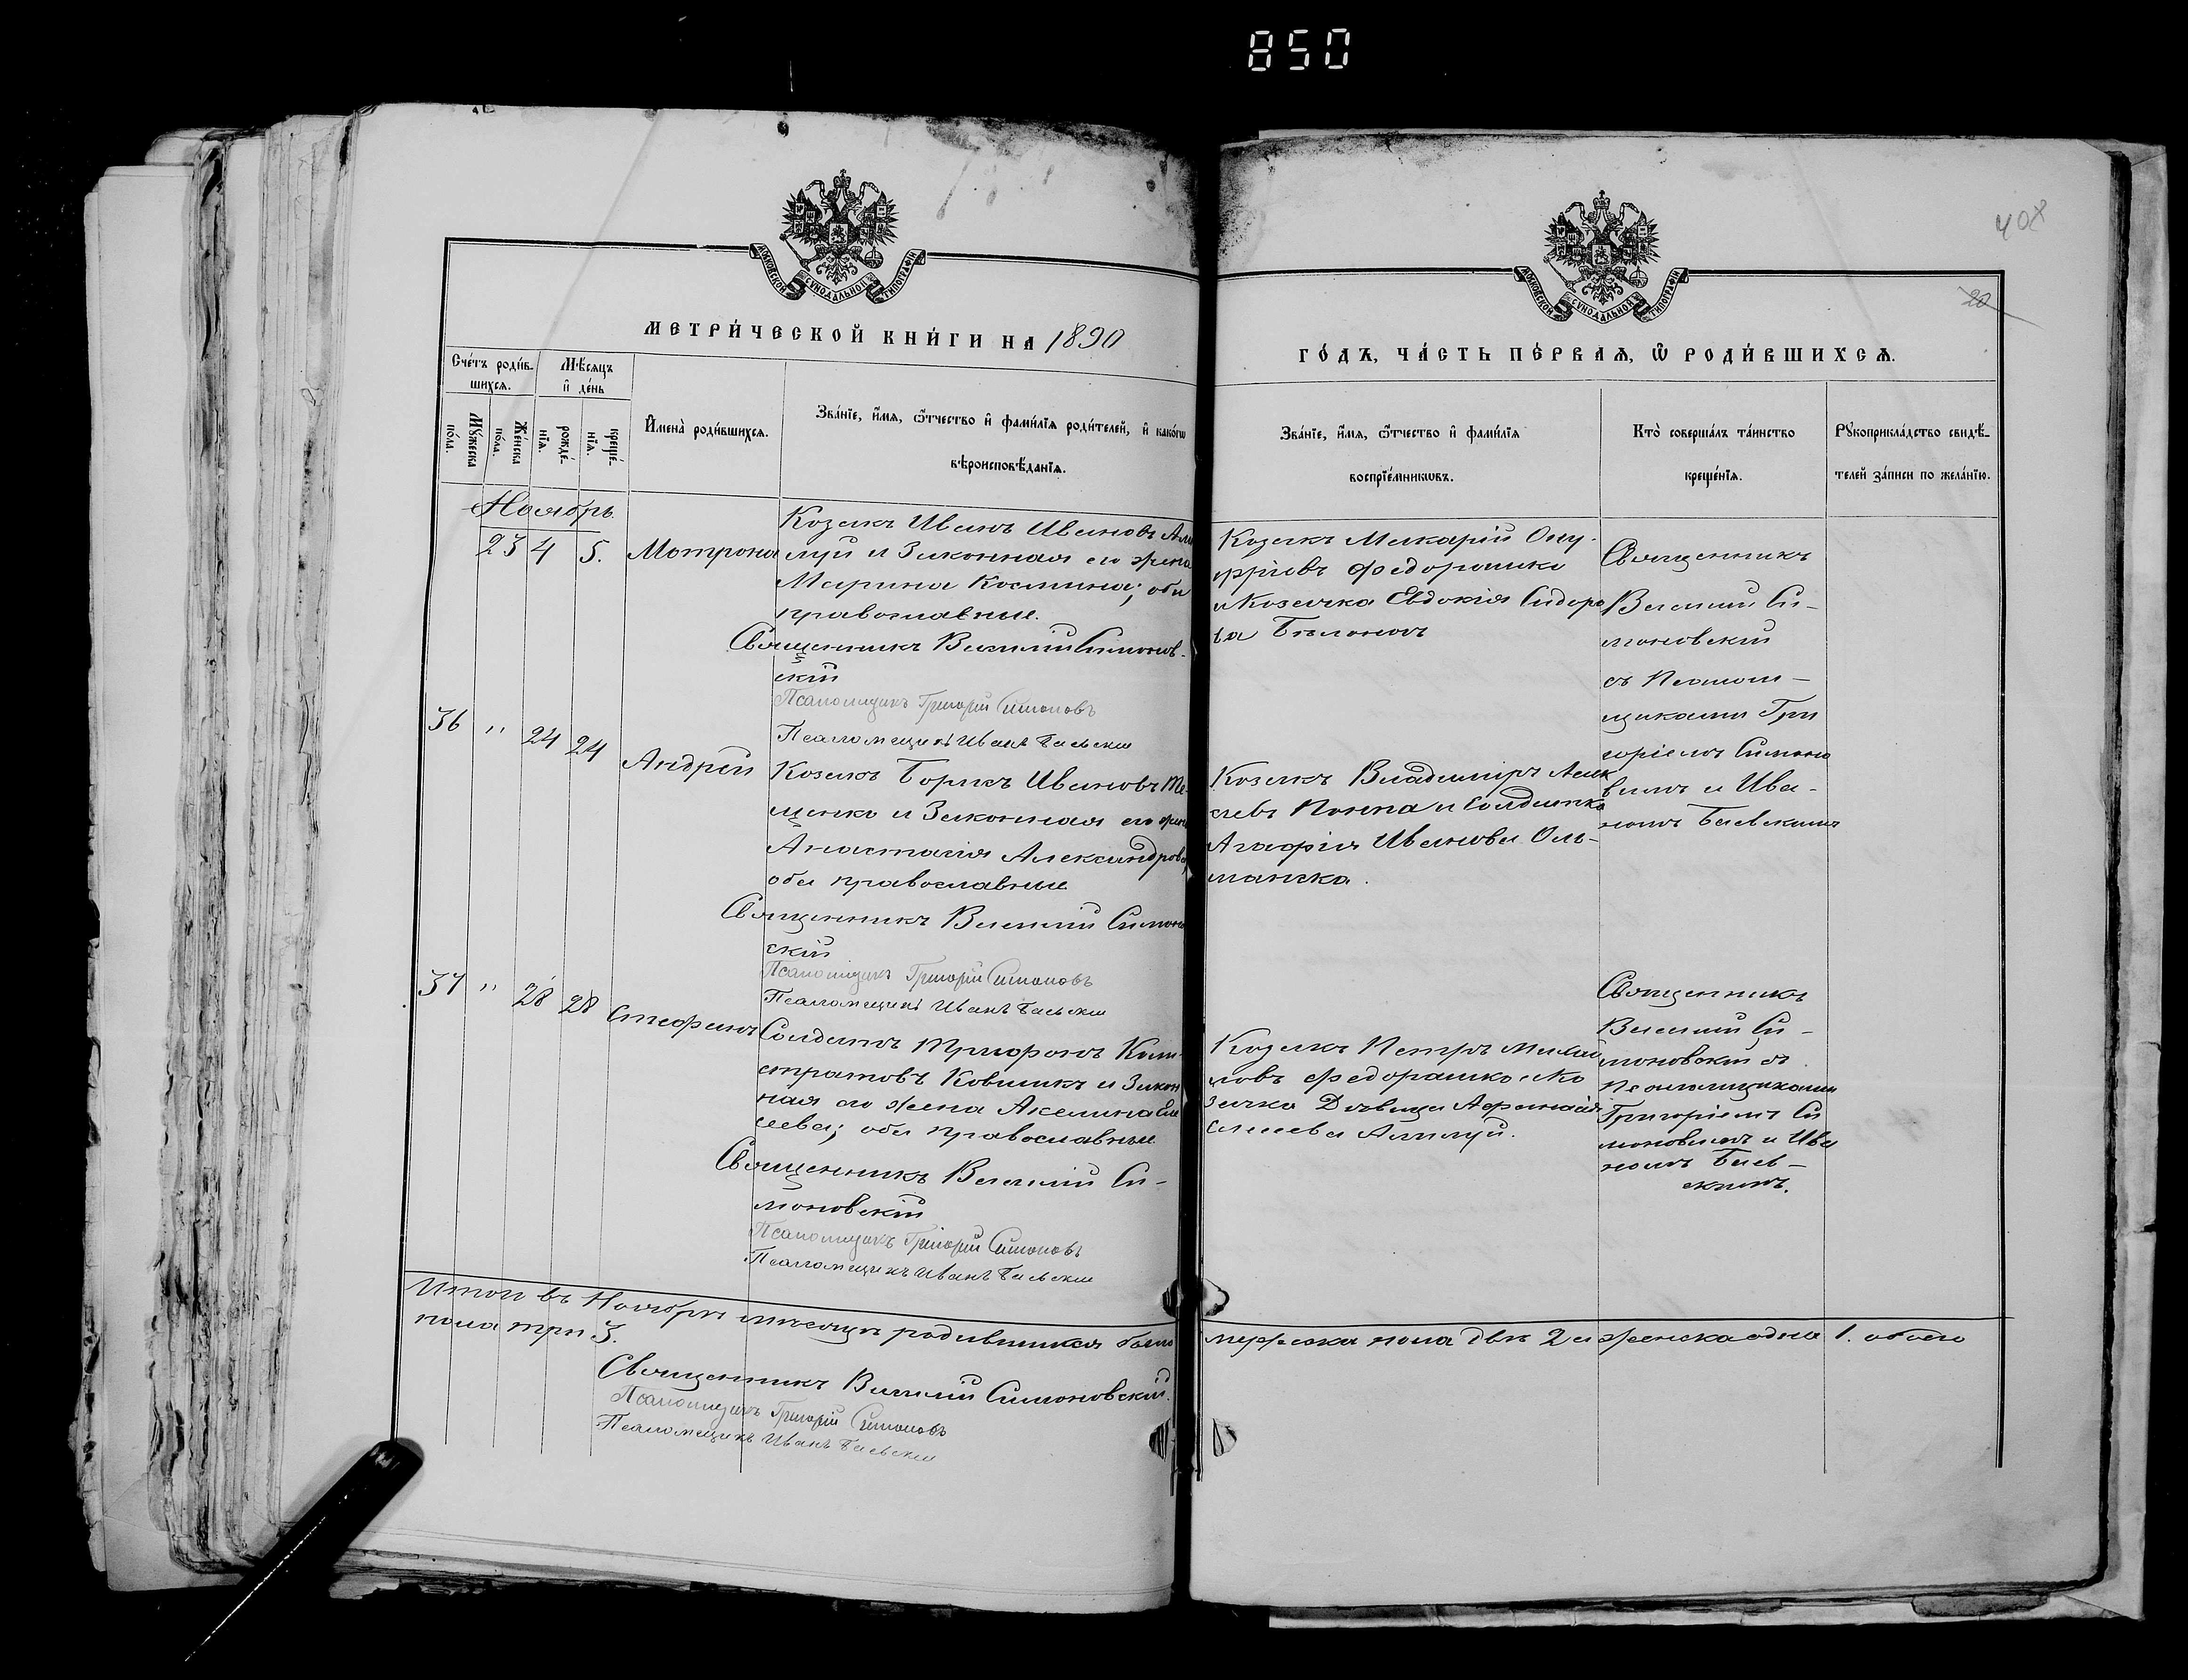 850
408
20
МОСКОВСКОЙ СУНОДАЛЬНОЙ ТИПОГРАФІИ
МОСКОВСКОЙ СУНОДАЛЬНОЙ ТИПОГРАФІИ
МЕТРИ́ЧЕСКОЙ КНИ́ГИ НА 1890
ГО́ДЪ, ЧА́СТЬ ПЕ́РВАѦ, Ѽ РОДИ́ВШИХСѦ.
Сче́тъ роди́в-
шихсѧ.
Мѣ́сѧцъ
и҆ де́нь
Мꙋ́жеска
по́ла.
Же́нска
по́ла.
рожде́-
нїѧ.
креще́-
нїѧ.
И҆мена̀ роди́вшихсѧ.
Зва́нїе, и҆́мѧ, ѻ҆́тчество и҆ фами́лїѧ роди́телей, и҆ како́гѡ
вѣроисповѣ́данїѧ.
Зва́нїе, и҆́мѧ, ѻ҆́тчество и҆ фами́лїѧ
воспрїе́мникѡвъ.
Кто̀ соверша́лъ та́инство
креще́нїѧ.
Рꙋкоприкла́дство свидѣ́-
телей за́писи по жела́нїю.
Ноябрь.
23 4 5. Мотрона
Козакъ Иванъ Ивановъ Али
луй и Законная его жена
Марина Космина; оба
православные.
Священникъ Василій Симонов-
скій
Псаломщикъ Григорій Симоновъ
Псаломщикъ Иванъ Баевскій
Козакъ Макарій Ону-
фріевъ Федорашко
и Козачка Евдокія Сидоро
ва
Священникъ
Василій Си-
моновскій
съ Псалом-
щиками Гри
горіемъ Симоно
вымъ и Ива-
номъ Баевскимъ
36 " 24 24 Андрей
Козакъ Борисъ Ивановъ Те-
щенко и Законная его жена
Анастасія Александрова,
оба православные
Священникъ Василій Симонов
скій
Псаломщикъ Григорій Симоновъ
Псаломщикъ Иванъ Баевскій
Козакъ Владиміръ Алек
сѣевъ и Солдатка
Агафія Иванова Оль-
37 " 28 28 Стефанъ
Солдатъ Трифонъ Кали-
стратовъ Ковшикъ и Закон
ная его жена Акелина Ели
сеева; оба православные
Священникъ Василій Си-
моновскій
Псаломщикъ Григорій Симоновъ
Псаломщикъ Иванъ Баевскій
Козакъ Петръ Михай
ловъ Федорашко и Ко
зачка Дѣвица Афанасія
Алилуй.
Священникъ
Василій Си-
моновскій съ
Псаломщиками
Григоріемъ Си
моновымъ и Ива
номъ Баев-
скимъ.
Итого въ Ноябрѣ мѣсяцѣ родившихся было мужеска пола два 2 и женска одна 1. обоего
пола три 3.
Священникъ Василій Симоновскій.
Псаломщикъ Григорій Симоновъ
Псаломщикъ Иванъ Баевскій